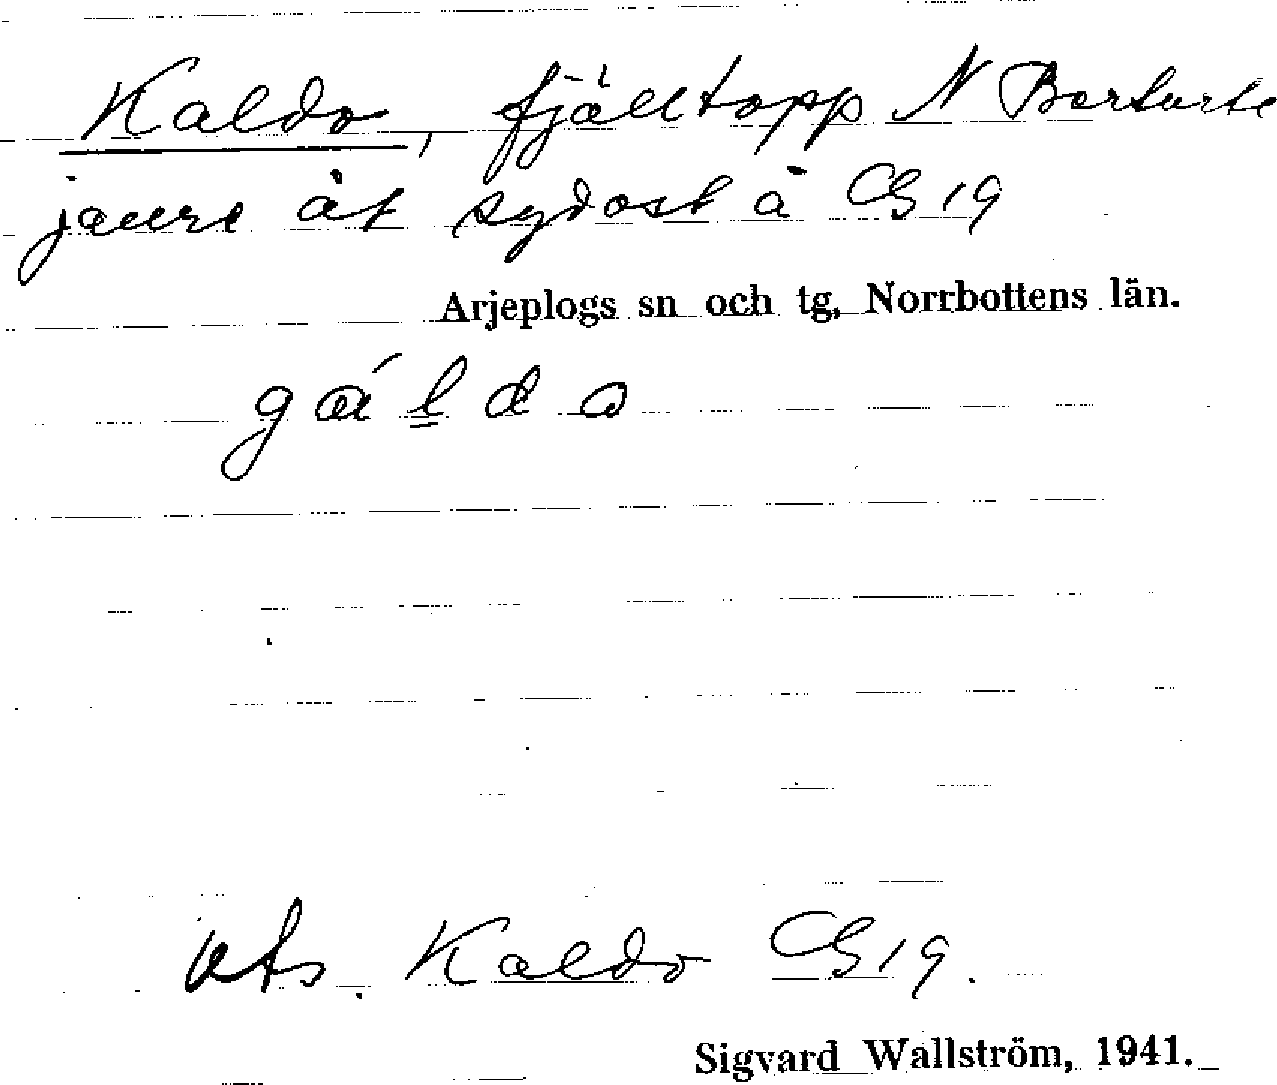 Kaldo, fjälltopp N Barturte
jaure åt sydost å CG 19
Arjeplogs sn och tg, Norrbottens län.
gáldo
uts. Kaldo CG 19.
Sigvard Wallström, 1941.